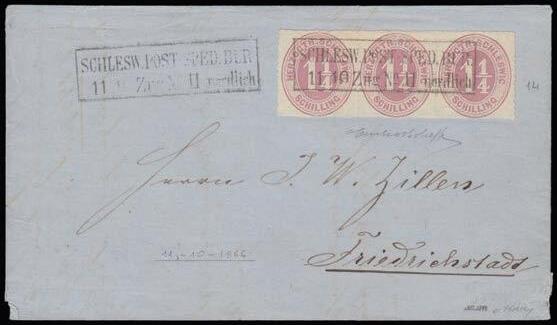 SCHLESW. POST SPED. BUR.
11 10 Zug No II nördlich
SCHLESW. POST SPED. BUR.
11 10 Zug No II nördlich
HERZOGTH. SCHLESWIG
1¼
SCHILLING
HERZOGTH. SCHLESWIG
1¼
SCHILLING
HERZOGTH. SCHLESWIG
1¼
SCHILLING
14
Herrn J. W. Zillen
Friedrichstadt
11-10-1866